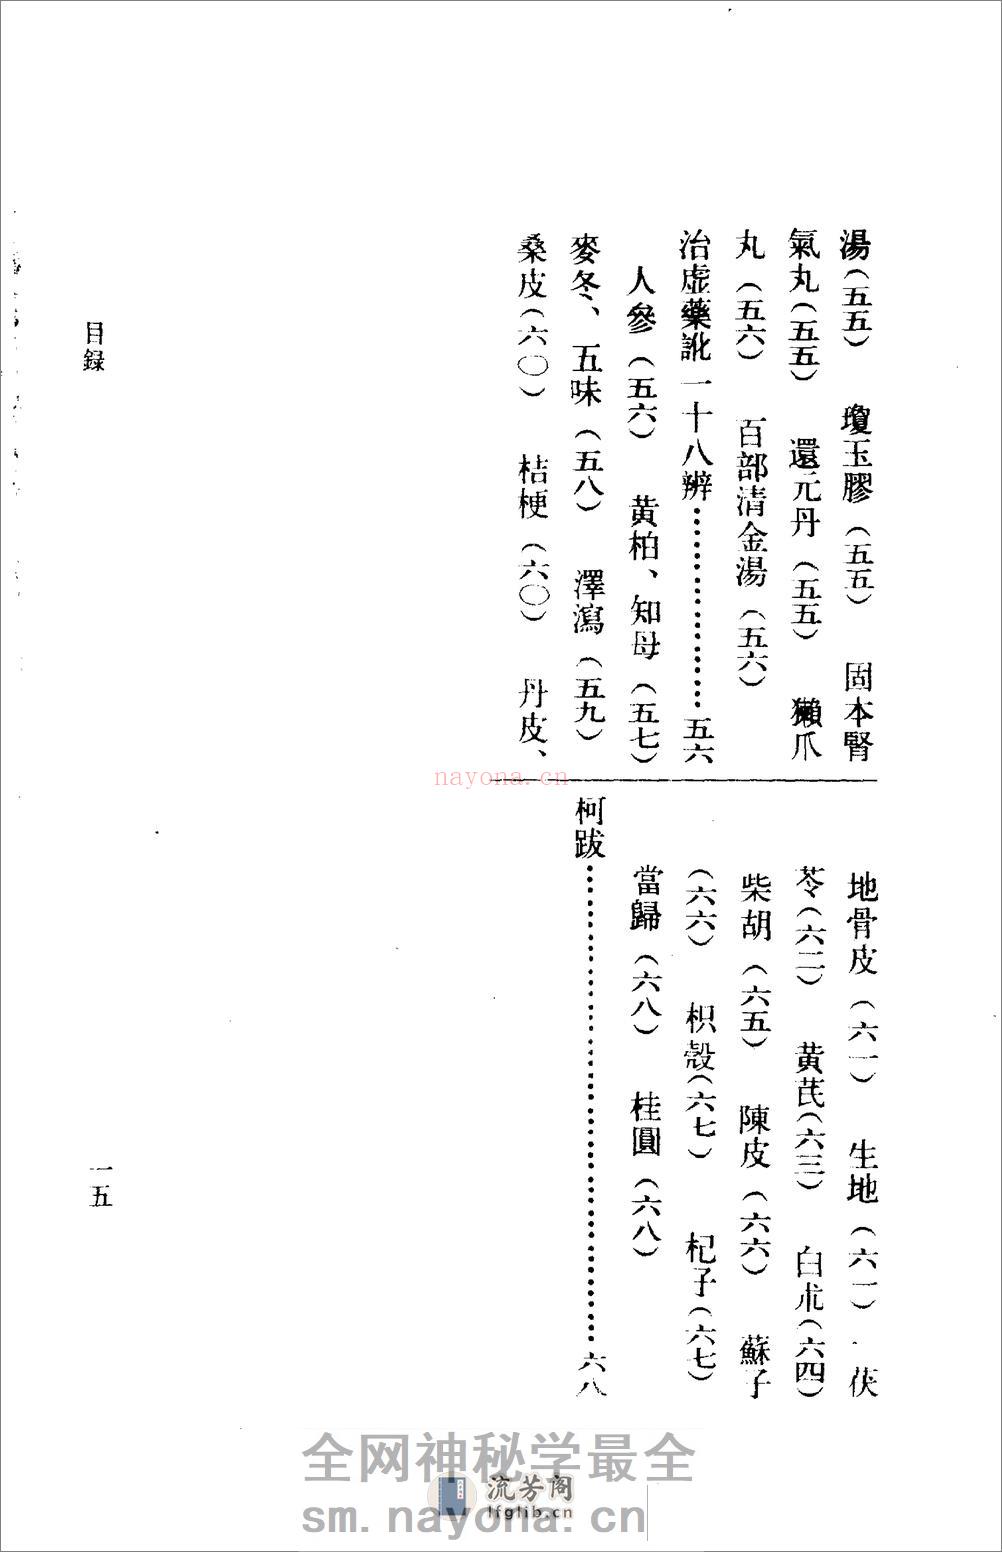 湯（五五）　瓊玉膠（五五）　固本腎
氣丸（五五）　還元丹（五五）　獺爪
丸（五六）　百部清金湯（五六）
治虛藥訛一十八辨……………五六
人參（五六）　黄柏、知母（五七）
麥冬、五味（五八）　澤瀉（五九）
桑皮（六〇）　桔梗（六〇）　丹皮、
地骨皮（六一）　生地（六一）　茯
苓（六二）　黄芪（六三）　白朮（六四）
柴胡（六五）　陳皮（六六）　蘇子
（六六）　枳殼（六七）　杞子（六七）
當歸（六八）　桂圓（六八）
柯跋……………………………六八
目錄
一五
nayona.cn
全网神秘学最全
流芳阁
lfglib.cn
sm.nayona.cn